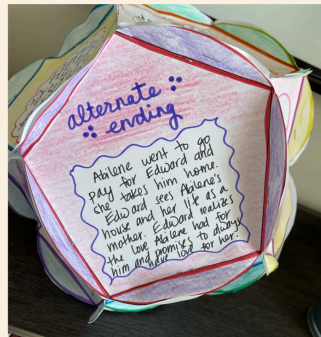 alternate
ending
Abilene went to go
pay for Edward and
she takes him home.
Edward sees Abilene's
house and her life as a
mother. Edward realizes
the love Abilene had for
him and promises to always
have love for her.